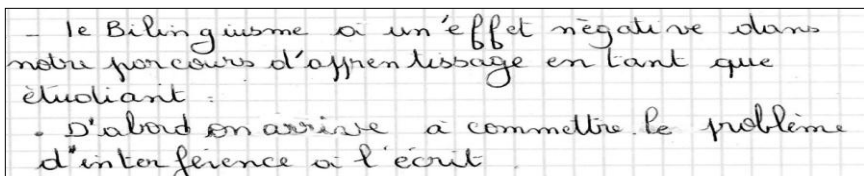 - le Bilinguisme a un'effet négative dans
notre parcours d'apprentissage en tant que
étudiant :
. D'abord on arrive a commettre le problème
d'interférence a l'écrit